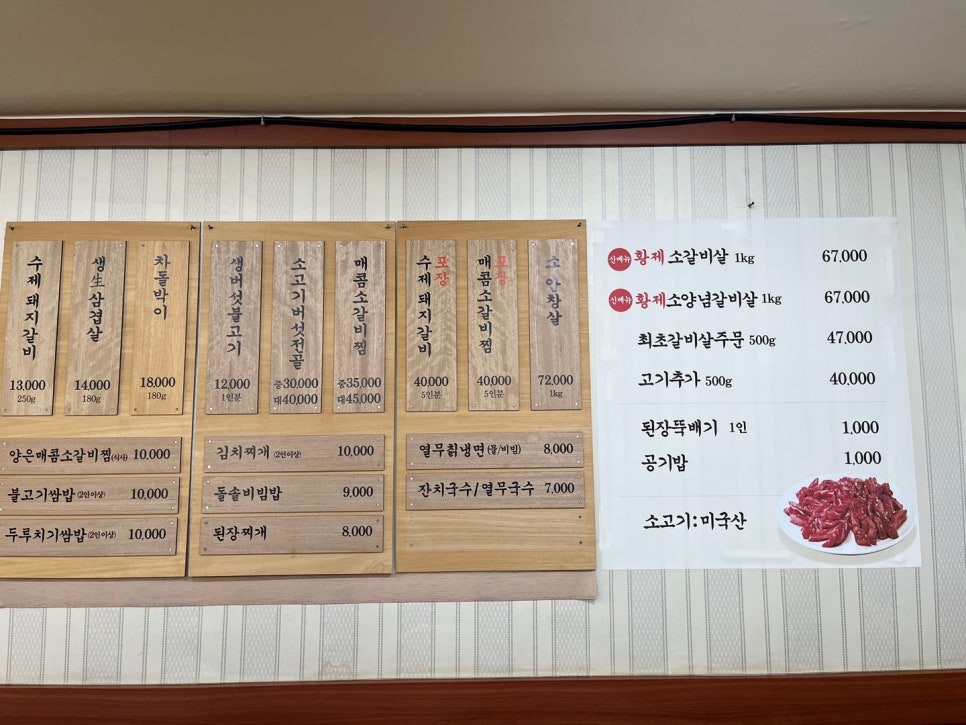 수제 돼지갈비
13,000
250g
생生삼겹살
14,000
180g
차돌박이
18,000
180g
양은매콤소갈비찜(식사) 10,000
불고기쌈밥(2인이상) 10,000
두루치기쌈밥(2인이상) 10,000
생버섯불고기
12,000
1인분
소고기버섯전골
중30,000
대40,000
매콤소갈비찜
중35,000
대45,000
김치찌개 (2인이상) 10,000
돌솥비빔밥 9,000
된장찌개 8,000
포장
수제 돼지갈비
40,000
5인분
포장
매콤소갈비찜
40,000
5인분
소 안창살
72,000
1kg
열무칡냉면(물/비빔) 8,000
잔치국수/열무국수 7,000
신메뉴 황제 소갈비살 1kg 67,000
신메뉴 황제 소양념갈비살 1kg 67,000
최초갈비살주문 500g 47,000
고기추가 500g 40,000
된장뚝배기 1인 1,000
공기밥 1,000
소고기:미국산